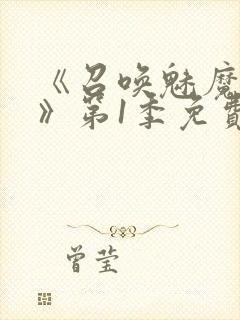 《召唤魅魔
》第1季免費
曾莹